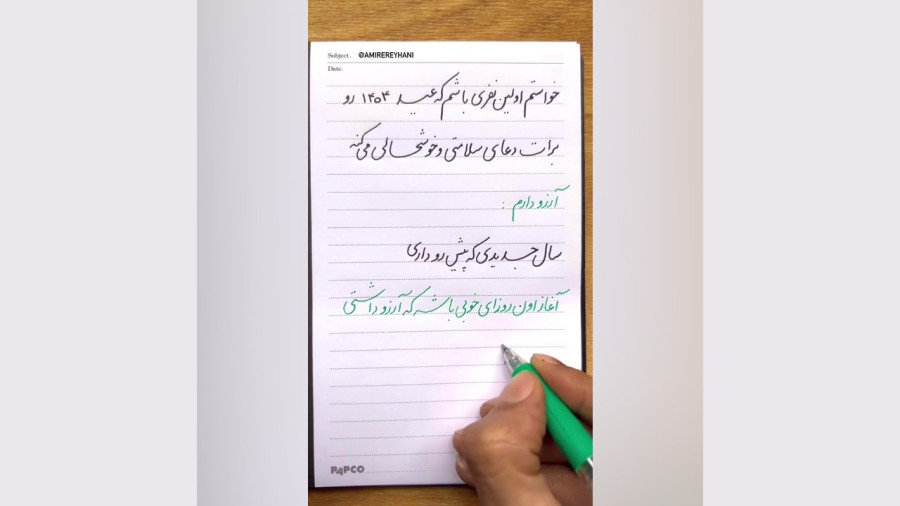 Subject. @AMIREREYHANI
Date.
خواستم اولین نفری باشم که عید ۱۴۰۴ رو
برات دعای سلامتی و خوشحالی می‌کنه
آرزو دارم :
سال جدیدی که پیش رو داری
آغاز اون روزای خوبی باشه که آرزو داشتی
PAPCO